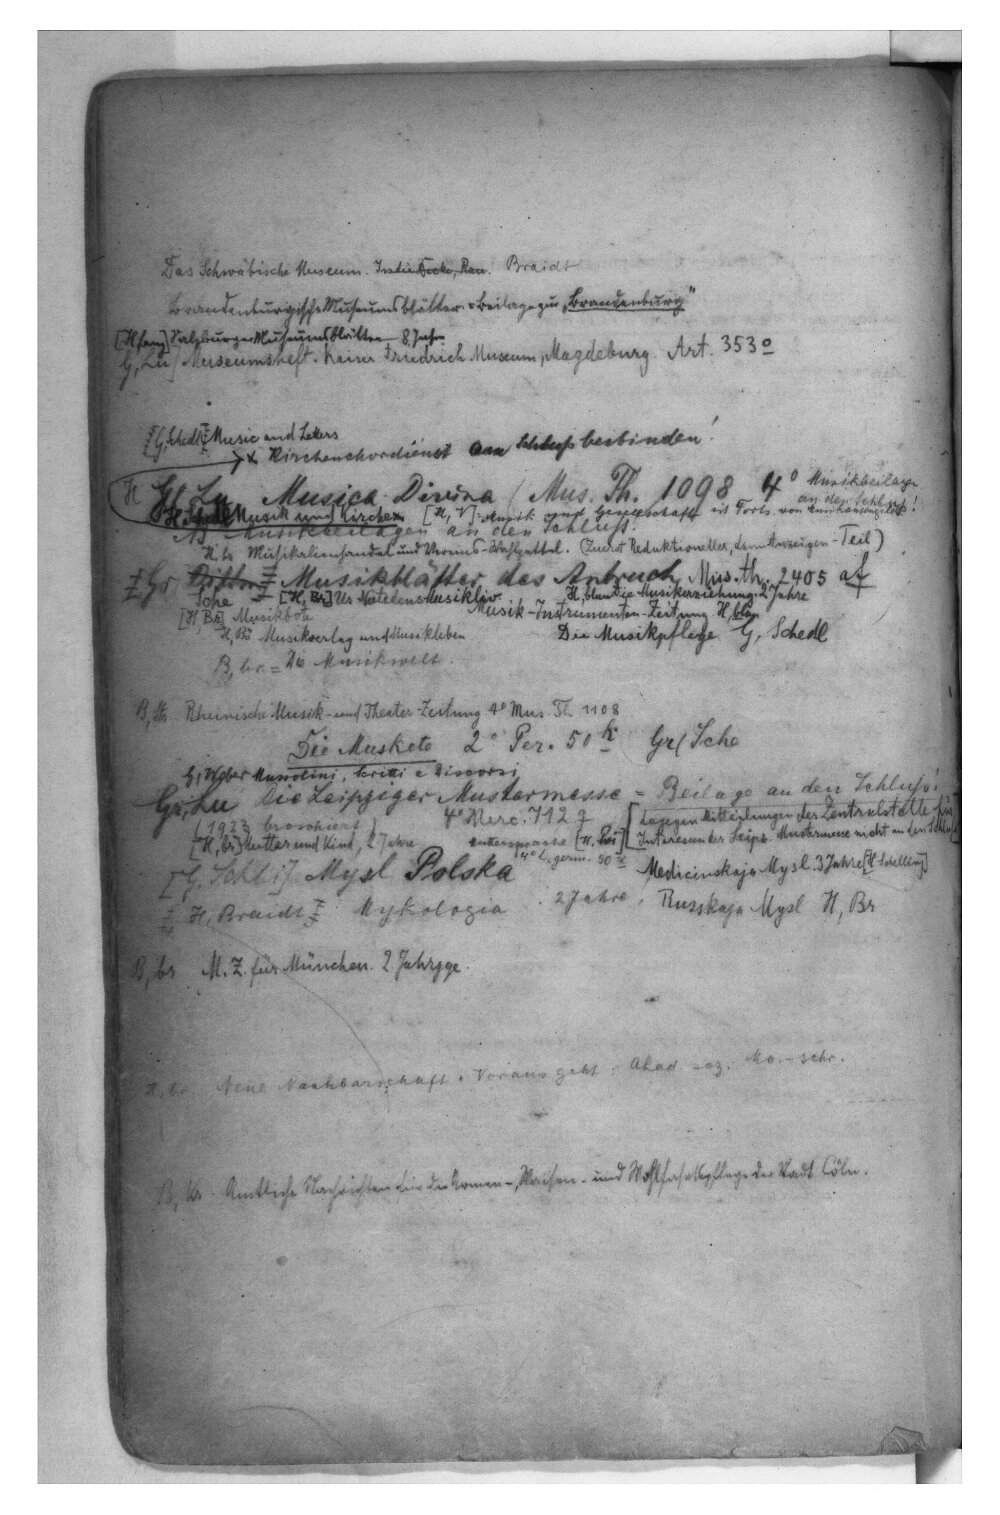 Das Schwäbische Museum. Braidt
Brandenburgische Museumsblätter = Beilage zu „Brandenburg"
Salzburger Museumsblätter 8 Jahr
G, Lu] Museumsheft. Kaiser Friedrich Museum, Magdeburg. Art. 353 o
[G, Schedl] Music and Letters
x Kirchenchordienst am Schluß beibinden!
H Gr, Lu Musica Divina / Mus. Th. 1098 4° Musikbeilagen an den Schluß!
Musik und Kirche [H, V] Musik und Gesellschaft mit Forts. von
NB Musikbeilagen an den Schluß!
H, br Musikalienhandel und Vereins-Wahlzettel. (Zuerst Redaktioneller, dann Anzeigen-Teil)
Gr Musikblätter des Anbruch Mus. th. 2405 af
Sche [H, Br] H, blau Die Musikerziehung. 2 Jahre
[H, Br] Musikbote Musik-Instrumenten-Zeitung H, blau
H, Br Musikverlag und Musikleben Die Musikpflege G, Schedl
B, br. = Die Musikwelt.
B, Str. Rheinische Musik- und Theater-Zeitung 4° Mus. Th 1108
Die Muskete 2° Per. 50 k Gr/ Sche
G, Weber Mussolini, Scritti e Discorsi
Gr, Lu Die Leipziger Mustermesse = Beilage an den Schluß!
(1923 broschiert) 4° Merc. 712 q [dagegen Mitteilungen der Zentralstelle für
[H, Br] Mutter und Kind, 2 Jahre Muttersprache Interessenten der Leipz. Mustermesse nicht an den Schluß]
4° L. germ. 50 x
[G, Schli] Mysl Polska Medicinskaja Mysl. 3 Jahre [H Schelling]
H, Braidt Mykologia 2 Jahre, Russkaja Mysl H, Br
B, br M. Z. für München. 2 Jahrgge.
H, br. Neue Nachbarschaft. Voraus geht: Akad. soz. Mo.-schr.
B, br. Amtliche Nachrichten für die Armen-, Waisen- und Wohlfahrtspflege der Stadt Cöln.